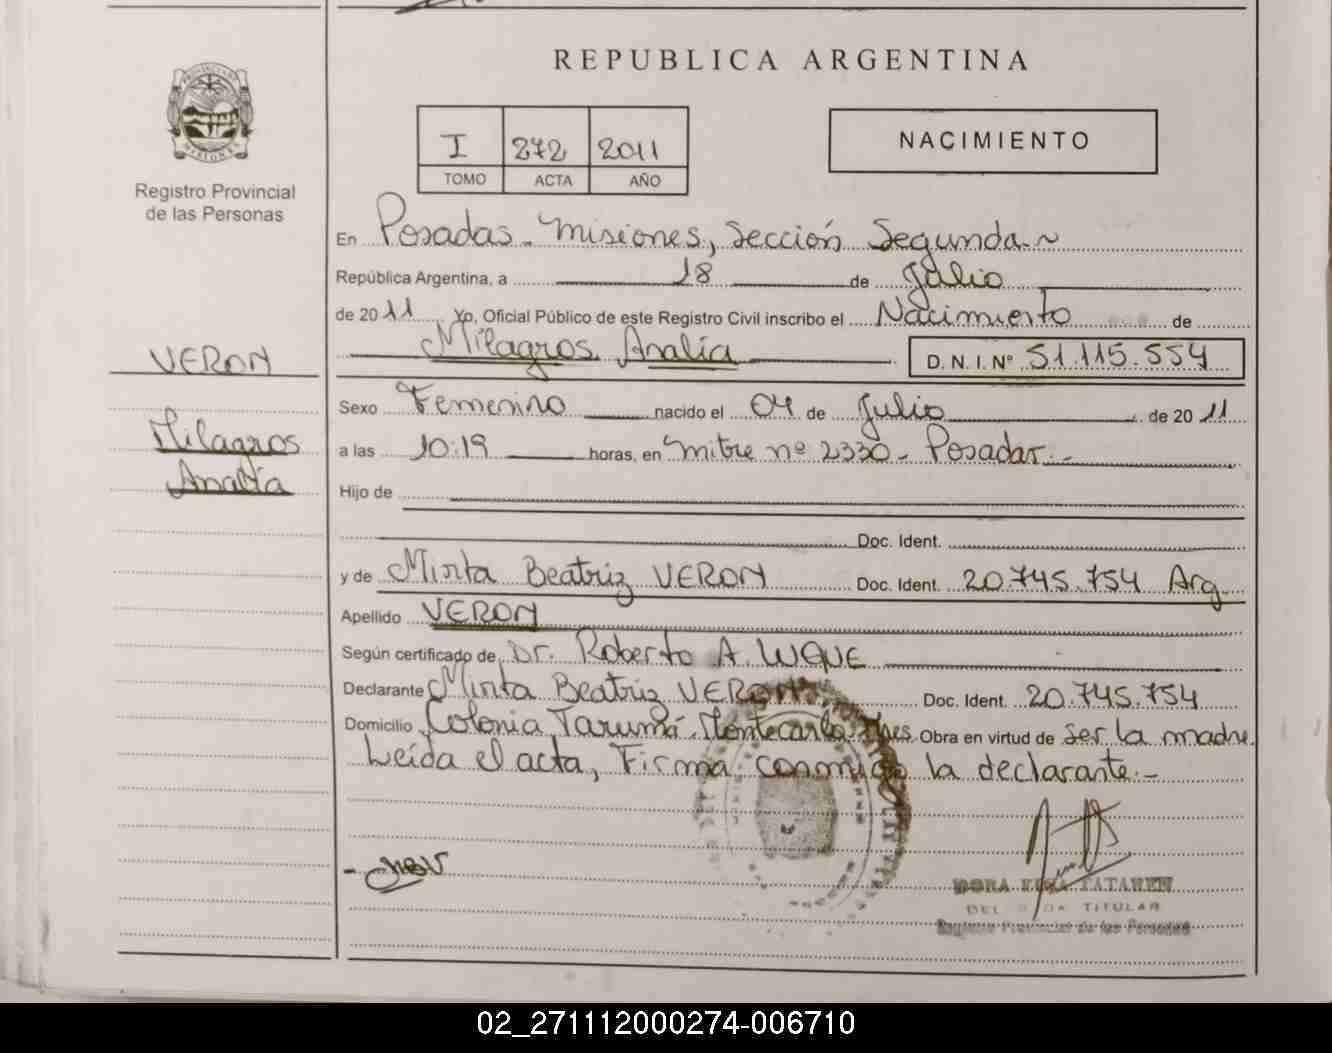 REPUBLICA ARGENTINA
PROVINCIA DE
MISIONES
Registro Provincial
de las Personas
I 272 2011
TOMO ACTA AÑO
NACIMIENTO
En Posadas - Misiones, Sección Segunda.~
República Argentina, a 18 de Julio
de 2011 Yo, Oficial Público de este Registro Civil inscribo el Nacimiento de
Milagros Analía D. N. I. Nº 51.115.554
VERON
Milagros
Analía
Sexo Femenino nacido el 04 de Julio de 2011
a las 10:19 horas, en Mitre nº 2330 - Posadas.-
Hijo de
Doc. Ident.
y de Mirta Beatriz VERON Doc. Ident. 20.745.754 Arg.
Apellido VERON
Según certificado de Dr. Roberto A. LUQUE
Declarante Mirta Beatriz VERON Doc. Ident. 20.745.754
Domicilio Colonia Tarumá - Montecarlo - Mnes Obra en virtud de Ser la madre.
Leída el acta, Firma conmigo la declarante.-
MBV
DORA
TITULAR
Registro Provincial de las Personas
02_271112000274-006710